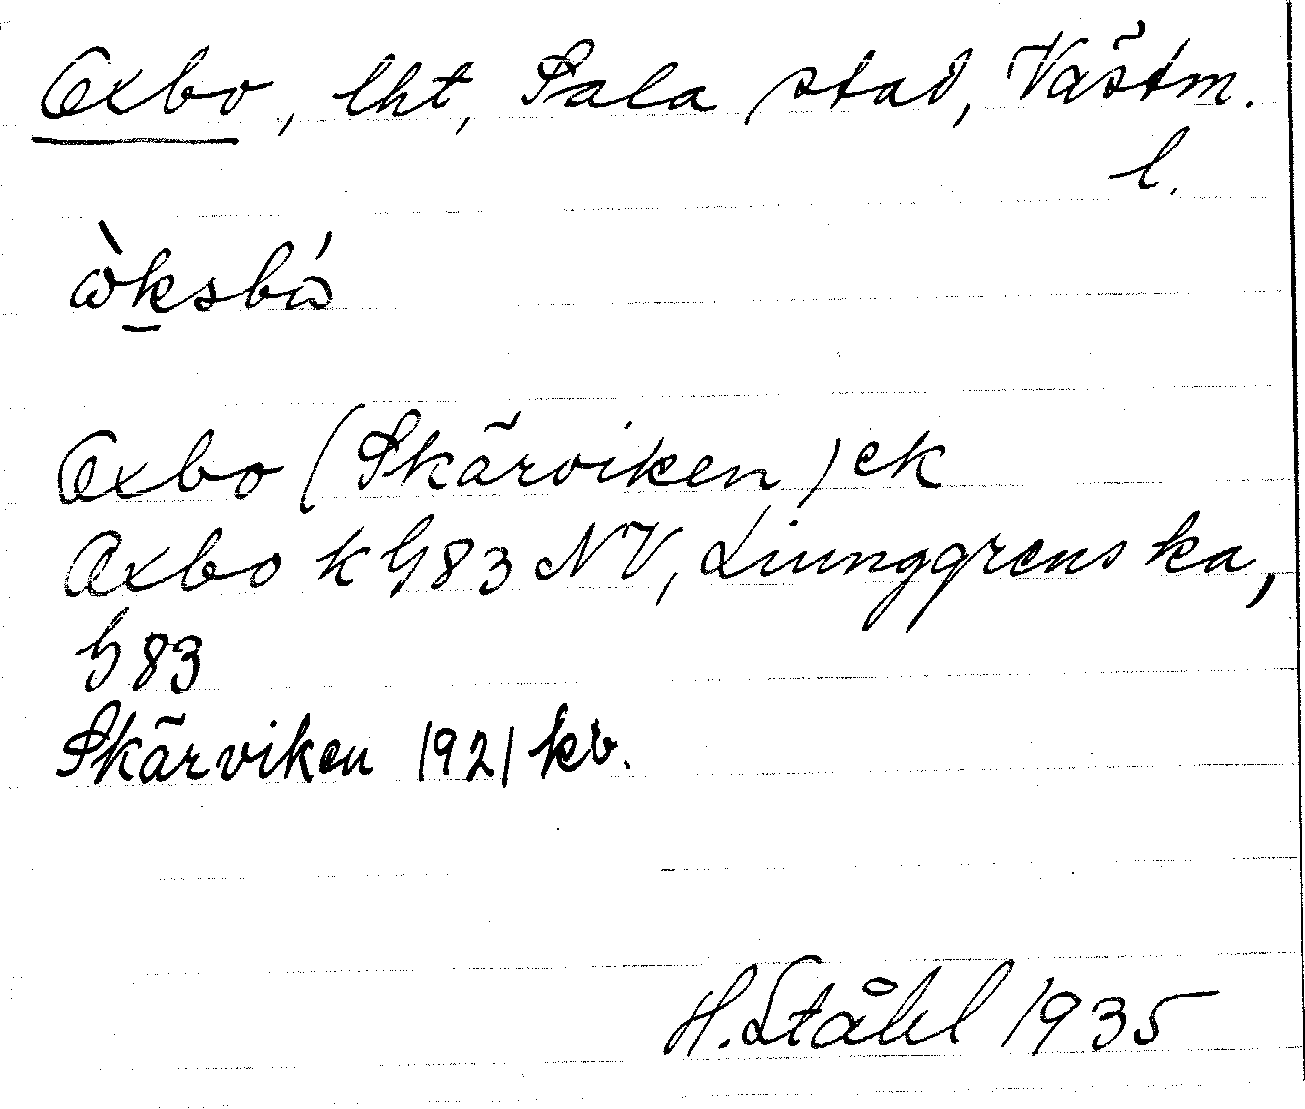 Oxbo, lht, Sala stad, Västm.
l.
ὼksbώ
Oxbo (Skärviken) ek
Oxbo k h83 NV, Liunggrens ka,
h83
Skärviken 1921 kb.
H. Ståhl 1935